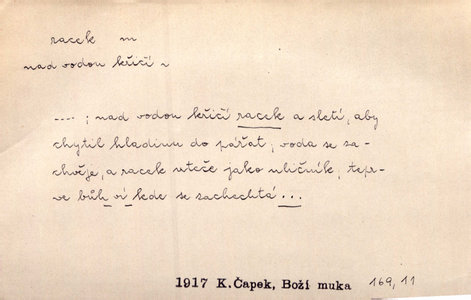 racek m
nad vodou křičí ~
....; nad vodou křičí racek a sletí, aby
chytil hladinu do pařat; voda se za-
chvěje, a racek uteče jako uličník; tepr-
ve bůh ví kde se zachechtá...
1917 K.Čapek, Boží muka 169,11